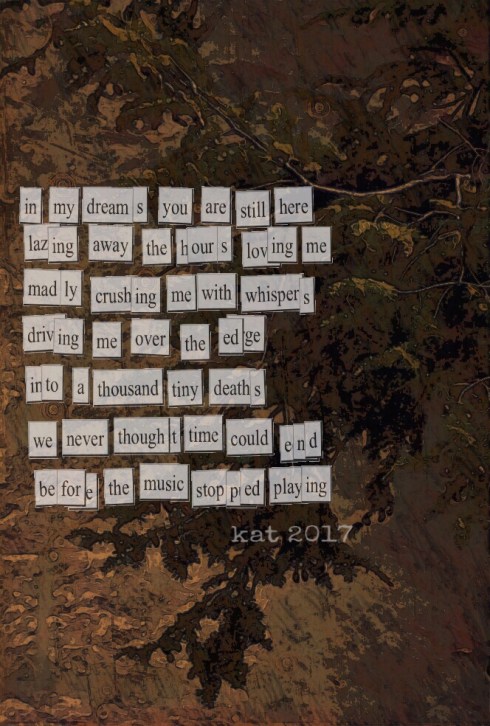 in my dreams you are still here
lazing away the hours loving me
madly crushing me with whispers
driving me over the edge
into a thousand tiny deaths
we never thought time could end
before the music stopped playing
kat 2017